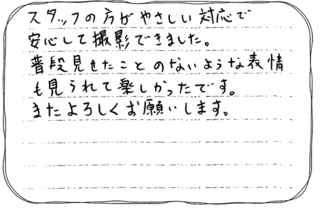 スタッフの方がやさしい対応で
安心して撮影できました。
普段見せたことのないような表情
も見られて楽しかったです。
またよろしくお願いします。